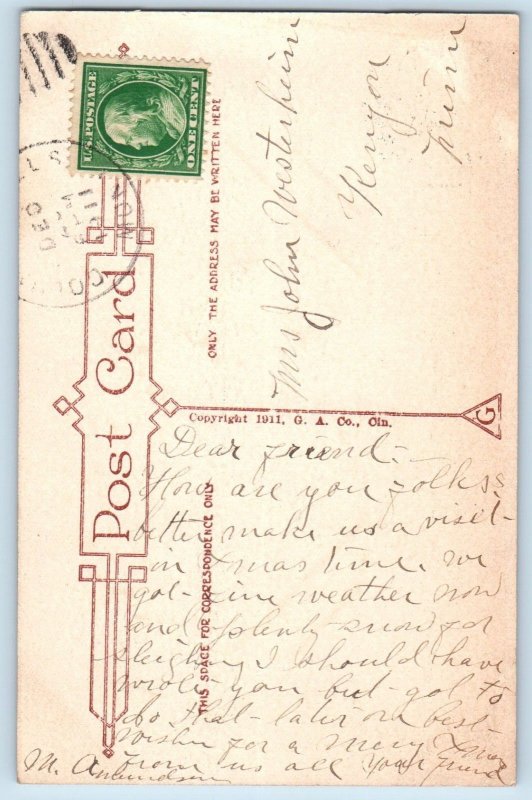 U.S. POSTAGE
ONE CENT
Post Card
ONLY THE ADDRESS MAY BE WRITTEN HERE
Mrs John Westerheim
Kenyon
Minn
Copyright 1911, G. A. Co., Cin.
G
THIS SPACE FOR CORRESPONDENCE ONLY
Dear friend.
How are you folks
better make us a visit
in Xmas time. we
got fine weather now
and plenty snow for
sleighing I should have
wrote you but got to
do that later on best
wishes for a Merry Xmas
from us all Your friend
M. Amundson